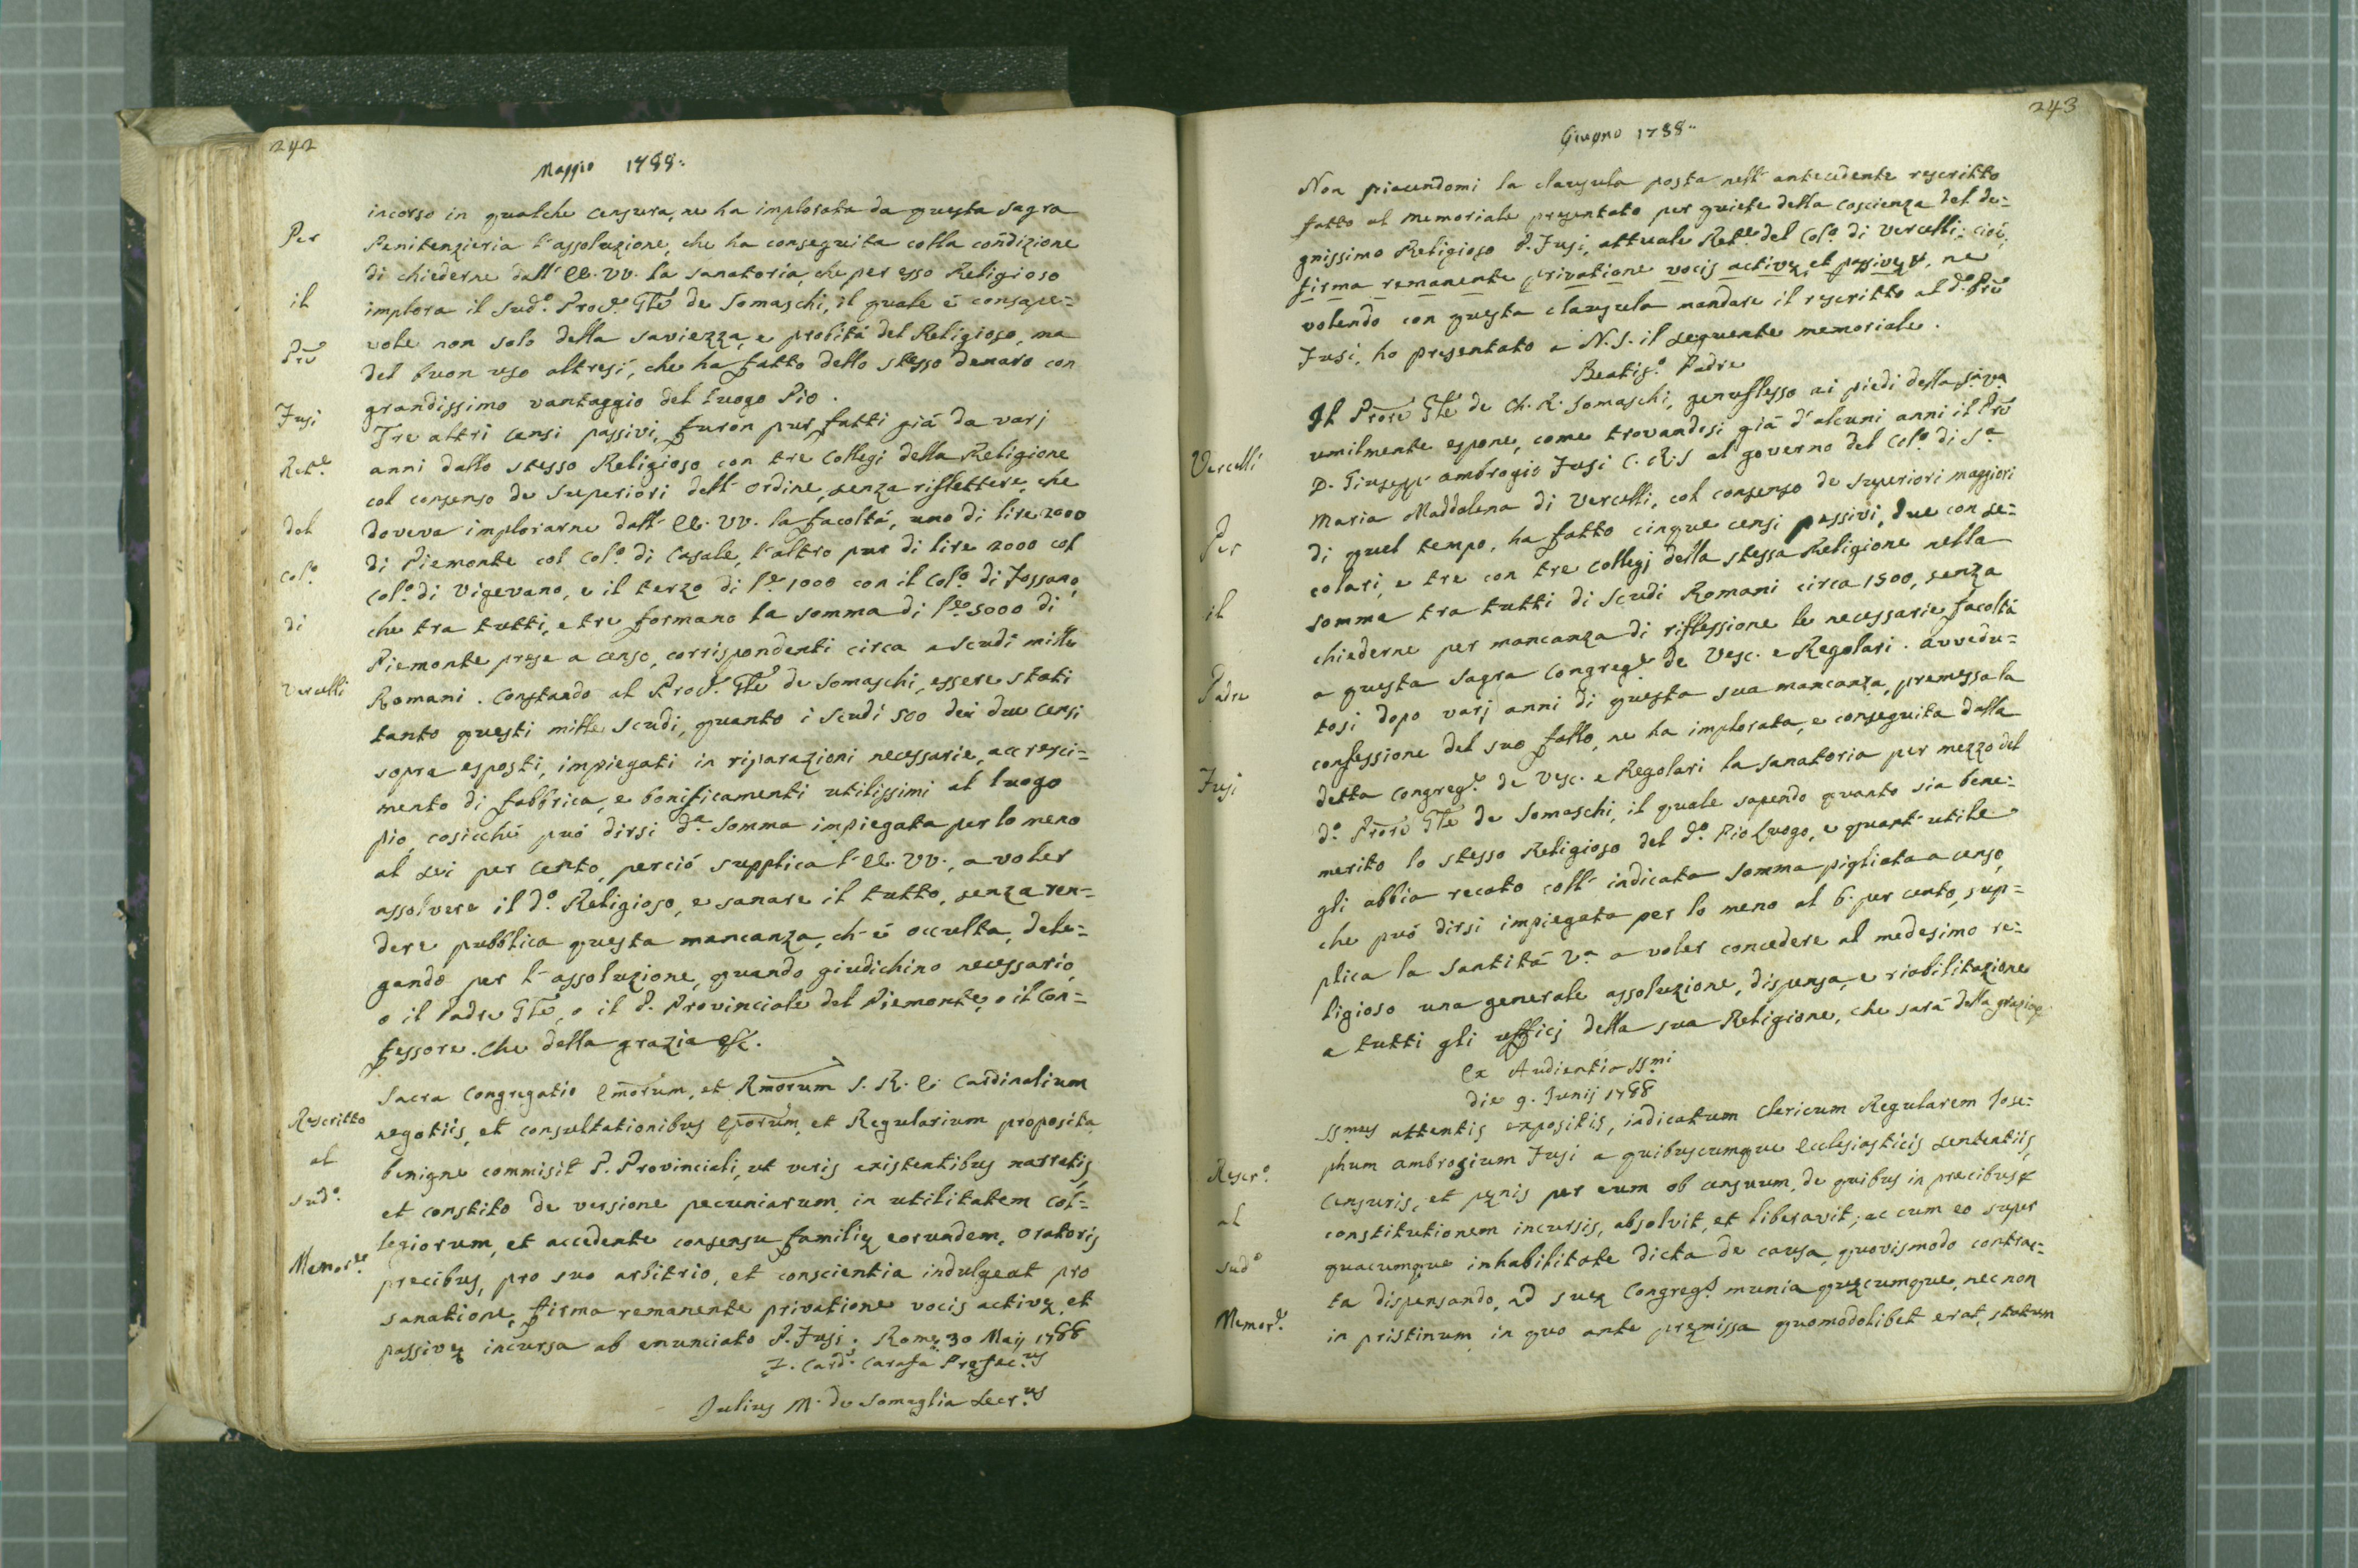 242
Maggio 1788..
incorso in qualche censura, ne ha implorata da questa Sagra
Per
Penitenzieria l'assoluzione, che ha conseguita colla condizione
di chiederne dall'EE. VV. la sanatoria, che per esso Religioso
il
implora il sud.º Proc.e Gñle de Somaschi, il quale é consape=
vole non solo della saviezza, e probità del Religioso, ma
Prē
del buon uso altresì, che ha fatto dello stesso denaro con
grandissimo vantaggio del luogo Pio.
Fusi
Tre altri censi passivi, furon pur fatti già da varj
Ret.e
anni dallo stesso Religioso con tre Collegi della Religione
col consenso de Superiori dell'ordine, senza riflettere, che
del
doveva implorarne dall'EE. VV. la facoltà, uno di lire 2000
di Piemonte col Col.º di Casale, l'altro pur di lire 2000 col
Col.º
Col.º di Vigevano, e il terzo di l.e 1000 con il Col.º di Fossano,
di
che tra tutti, e tre formano la somma di l.e 5000 di
Piemonte prese a censo, corrispondenti circa a scudi mille
Vercelli
Romani. Constando al Proc.e Gñle de Somaschi, essere stati
tanto questi mille scudi, quanto i scudi 500 dei due censi
sopra esposti, impiegati in riparazioni necessarie, accresci=
mento di fabbrica, e bonificamenti utilissimi al luogo
pio, cosicché può dirsi d.ª somma impiegata per lo meno
al sei per cento, perciò supplica l'EE. VV., a voler
assolvere il d.º Religioso, e sanare il tutto, senza ren=
dere pubblica questa mancanza, ch'é occulta, dele=
gando per l'assoluzione, quando giudichino necessario,
o il Padre Gñle, o il P. Provinciale del Piemonte, o il Con=
fessore. Che della grazia &c.
Sacra Congregatio Emorum, et Rmorum S. R. E. Cardinalium
Rescritto
negotiis, et consultationibus Eporum, et Regularium proposita
al
benigne commisit P. Provinciali, ut veris existentibus narratis,
sud.º
et constito de versione pecuniarum in utilitatem Col=
legiorum, et accedente consensu familię eorundem, oratoris
Memor.le
precibus, pro suo arbitrio, et conscientia indulgeat pro
sanatione, firma remanente privatione vocis activę, et
passivę incursa ab enunciato P. Fusi. Romę 30 Maij 1788
F. Card.s Carafa Pręfec.us
Julius M. de Somaglia Secr.us
243
Giugno 1788..
Non piacendomi la clausula posta nell'antecedente rescritto
fatto al memoriale presentato per quiete della coscienza del de=
gnissimo Religioso P. Fusi, attuale Ret.e del Col.º di Vercelli: cioè,
firma remanente privatione vocis activę, et passivę &, ne
volendo con questa clausula mandare il rescritto al d.º Prē
Fusi, ho presentato a N.S. il seguente memoriale.
Beatis.º Padre
Il Prore Gñle de Ch. R. Somaschi, genuflesso ai piedi della S.ª V.ª
umilmente espone, come trovandosi già d'alcuni anni il Prē
Vercelli
D. Giusepp' ambrogio Fusi C.R.S al governo del Col.º di S.ª
Maria Maddalena di Vercelli, col consenso de Superiori maggiori
Per
di quel tempo, ha fatto cinque censi passivi, due con se=
colari, e tre con tre Collegj della stessa Religione nella
il
somma tra tutti di Scudi Romani circa 1500, senza
chiederne per mancanza di riflessione le necessarie facoltà
Padre
a questa Sagra Congreg.e de Vesc. e Regolari. avvedu=
tosi dopo varj anni di questa sua mancanza, premessa la
confessione del suo fallo, ne ha implorata, e conseguita dalla
Fusi
detta Congreg.e de Vesc. e Regolari la sanatoria per mezzo del
d.º Prore Gñle de Somaschi, il quale sapendo quanto sia bene=
merito lo stesso Religioso del d.º Pio Luogo, e quant'utile
gli abbia recato coll'indicata somma pigliata a censo,
che può dirsi impiegata per lo meno al 6. per cento, sup=
plica la Santità V.ª a voler concedere al medesimo re=
ligioso una generale assoluzione, dispensa, e riabilitazione
a tutti gli ufficj della sua Religione, che sarà della grazia &
Ex Audientia SSmi
die 9. Junij 1788
SSmus attentis expositis, indicatum Clericum Regularem Jose=
phum ambrosium Fusi a quibuscumque Ecclesiasticis sententiis,
Rescr.º
Censuris, et pęnis per eum ob censuum, de quibus in precibus &
al
constitutionem incursis, absolvit, et liberavit; ac cum eo super
sud.º
quacumque inhabilitate dicta de causa quovismodo contrac=
ta dispensando, ad suę Congreg.s munia quęcumque, nec non
Memor.e
in pristinum, in quo ante pręmissa quomodolibet erat, statum